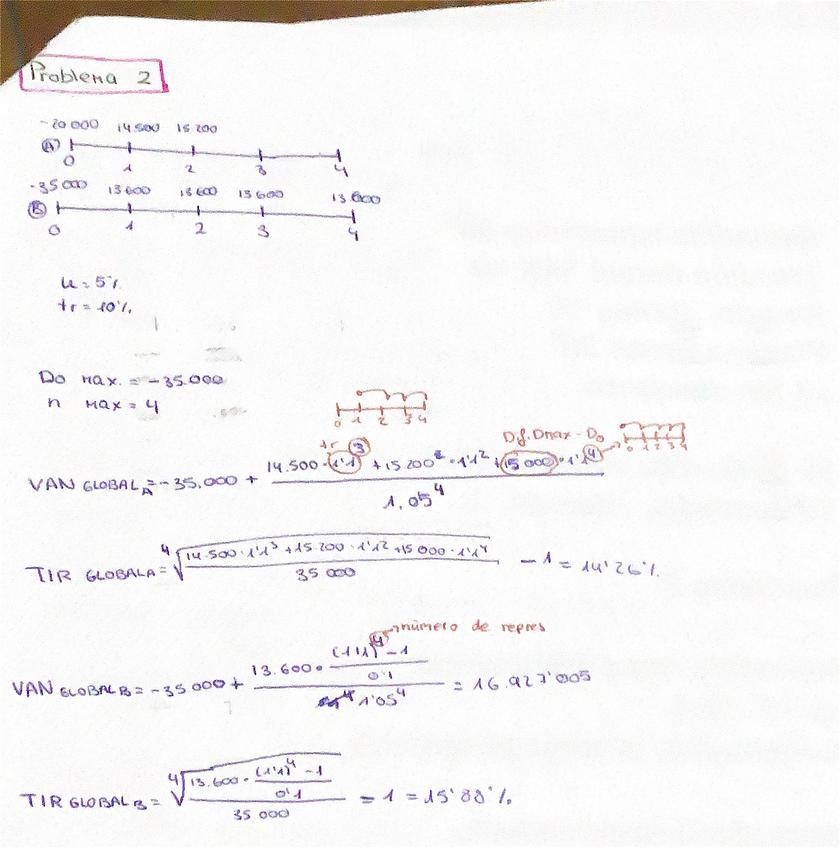 Problema 2
-20 000 14.500 15.200
A
0 1 2 3 4
-35 000 13 600 13 600 13 600 13 600
B
0 1 2 3 4
k = 5%
tr = 10%
Do max. = -35.000
n max = 4
0 1 2 3 4
tr 3 Dif. Dmax - Do 0 1 2 3 4
VAN GLOBAL A = -35.000 + (14.500 · 1'1^3 + 15.200^2 · 1'1^2 + 15 000 · 1'1^4) / 1.05^4
TIR GLOBAL A = 4√((14.500 · 1'1^3 + 15.200 · 1'1^2 + 15 000 · 1'1^4) / 35 000) - 1 = 14'26%
número de repres
VAN GLOBAL B = -35 000 + (13.600 · ((1'1)^4 - 1) / 0'1) / 1'05^4 = 16.927'005
TIR GLOBAL B = 4√((13.600 · ((1'1)^4 - 1) / 0'1) / 35 000) = 1 = 15'88%